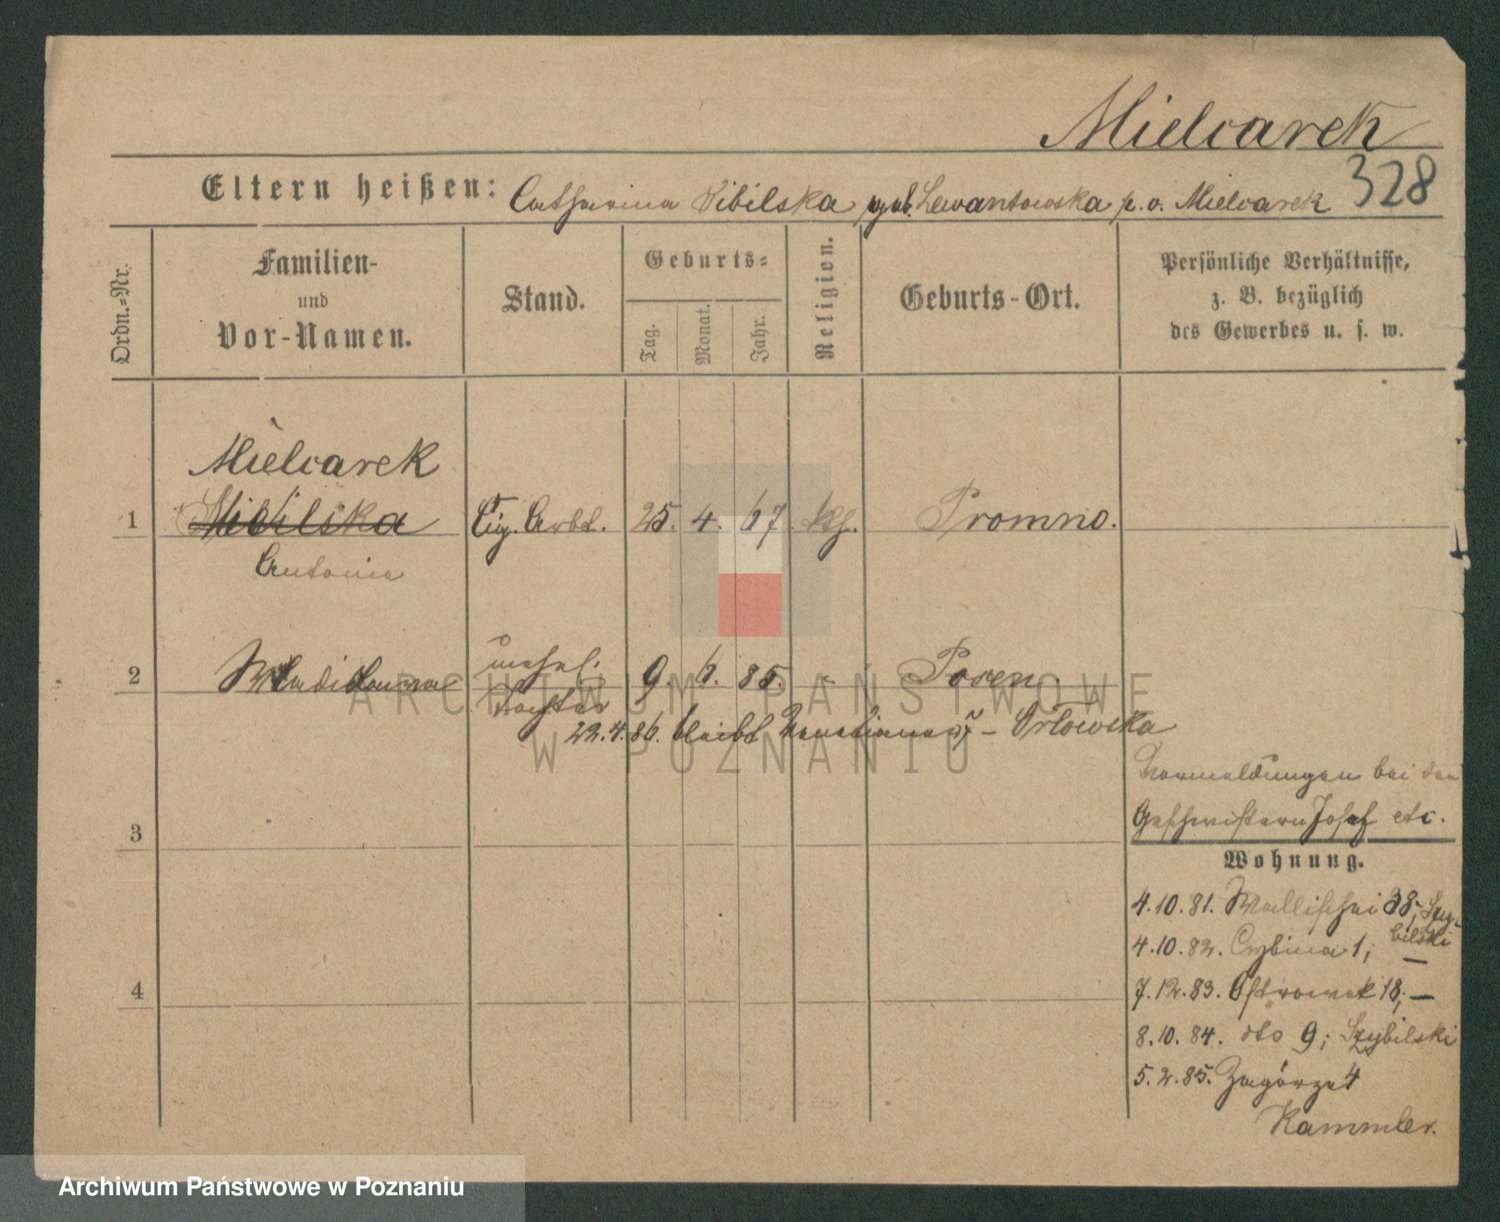 Mielcarek
328
Eltern heißen: Catharina Sibilska geb. Lewantowska p. v. Mielcarek
Ordn.-Nr.
Familien-
und
Vor-Namen.
Stand.
Geburts-
Tag.
Monat.
Jahr.
Religion.
Geburts-Ort.
Persönliche Verhältnisse,
z. B. bezüglich
des Gewerbes u. s. w.
Mielcarek
1 Sibilska Cig. Arbt. 25. 4. 67 kth. Promno.
Antonie
2 Wladislawa unehel. 9. 6. 85. - Posen
Tochter
22.4.86. bleibt - Orlowska
3
4
Vormeldungen bei den
Geschwistern Josef etc.
Wohnung.
4.10.81. Wallischei 38, Szy-
bilski
4.10.82. Cybina 1; —
7.12.83. Ostrowek 18; —
8.10.84. dto 9; Szybilski
5.2.85. Zagórze 4
Kammler.
ARCHIWUM PAŃSTWOWE
W POZNANIU
Archiwum Państwowe w Poznaniu